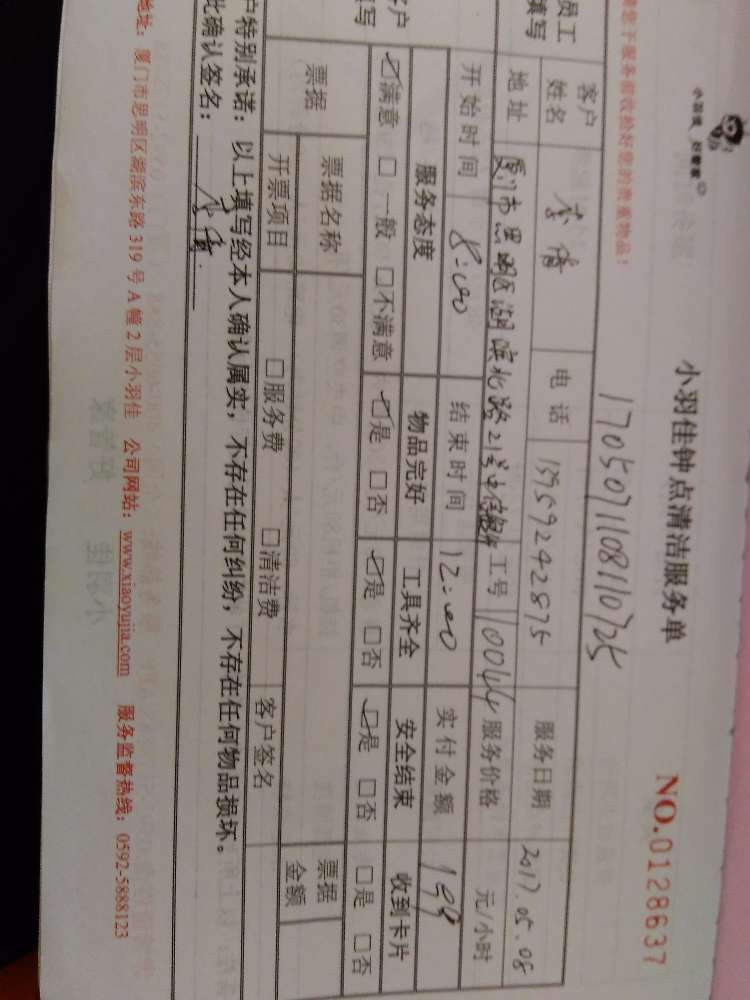 小羽佳 好管家
小羽佳钟点清洁服务单
NO.0128637
1705071108110725
您于服务前收拾好您的贵重物品！
员工填写
客户姓名 电话 13959242875 服务日期 2017.05.08
地址 厦门市思明区湖滨北路21号中信 工号 10044 服务价格 元/小时
开始时间 8:00 结束时间 12:00 实付金额 199
客户填写
服务态度 物品完好 工具齐全 安全结束 收到卡片
☑满意 □一般 □不满意 ☑是 □否 ☑是 □否 ☑是 □否 □是 □否
票据 票据名称 票据金额
开票项目 □服务费 □清洁费 客户签名
户特别承诺：以上填写经本人确认属实，不存在任何纠纷，不存在任何物品损坏。
此确认签名：
地址：厦门市思明区湖滨东路319号A幢2层小羽佳 公司网站：www.xiaoyujia.com 服务监督热线：0592-5888123